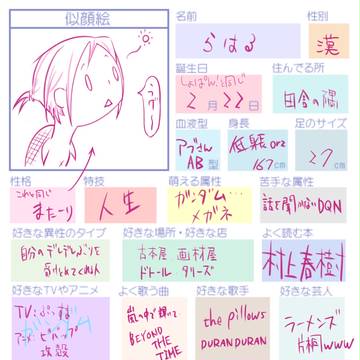 似顔絵
うづー
名前
らはる
性別
漢
誕生日
しょぱん!同じ
2月22日
住んでる所
田舎の隅
血液型
アブさん
AB型
身長
低執orz
167cm
足のサイズ
27cm
性格
これも同じ
またーり
特技
人生
萌える属性
ガンダム…
メガネ
苦手な属性
話を聞かないDQN
好きな異性のタイプ
自分の
好きな場所・好きな店
古本屋 画材屋
ドトール タリーズ
よく読む本
村上春樹
好きなTVやアニメ
TV:
アニメ:ビバップ
攻殻
よく歌う曲
嵐の中で輝いて
BEYOND
THE
TIME
好きな歌手
the pillows
DURAN DURAN
好きな芸人
ラーメンズ
片桐www